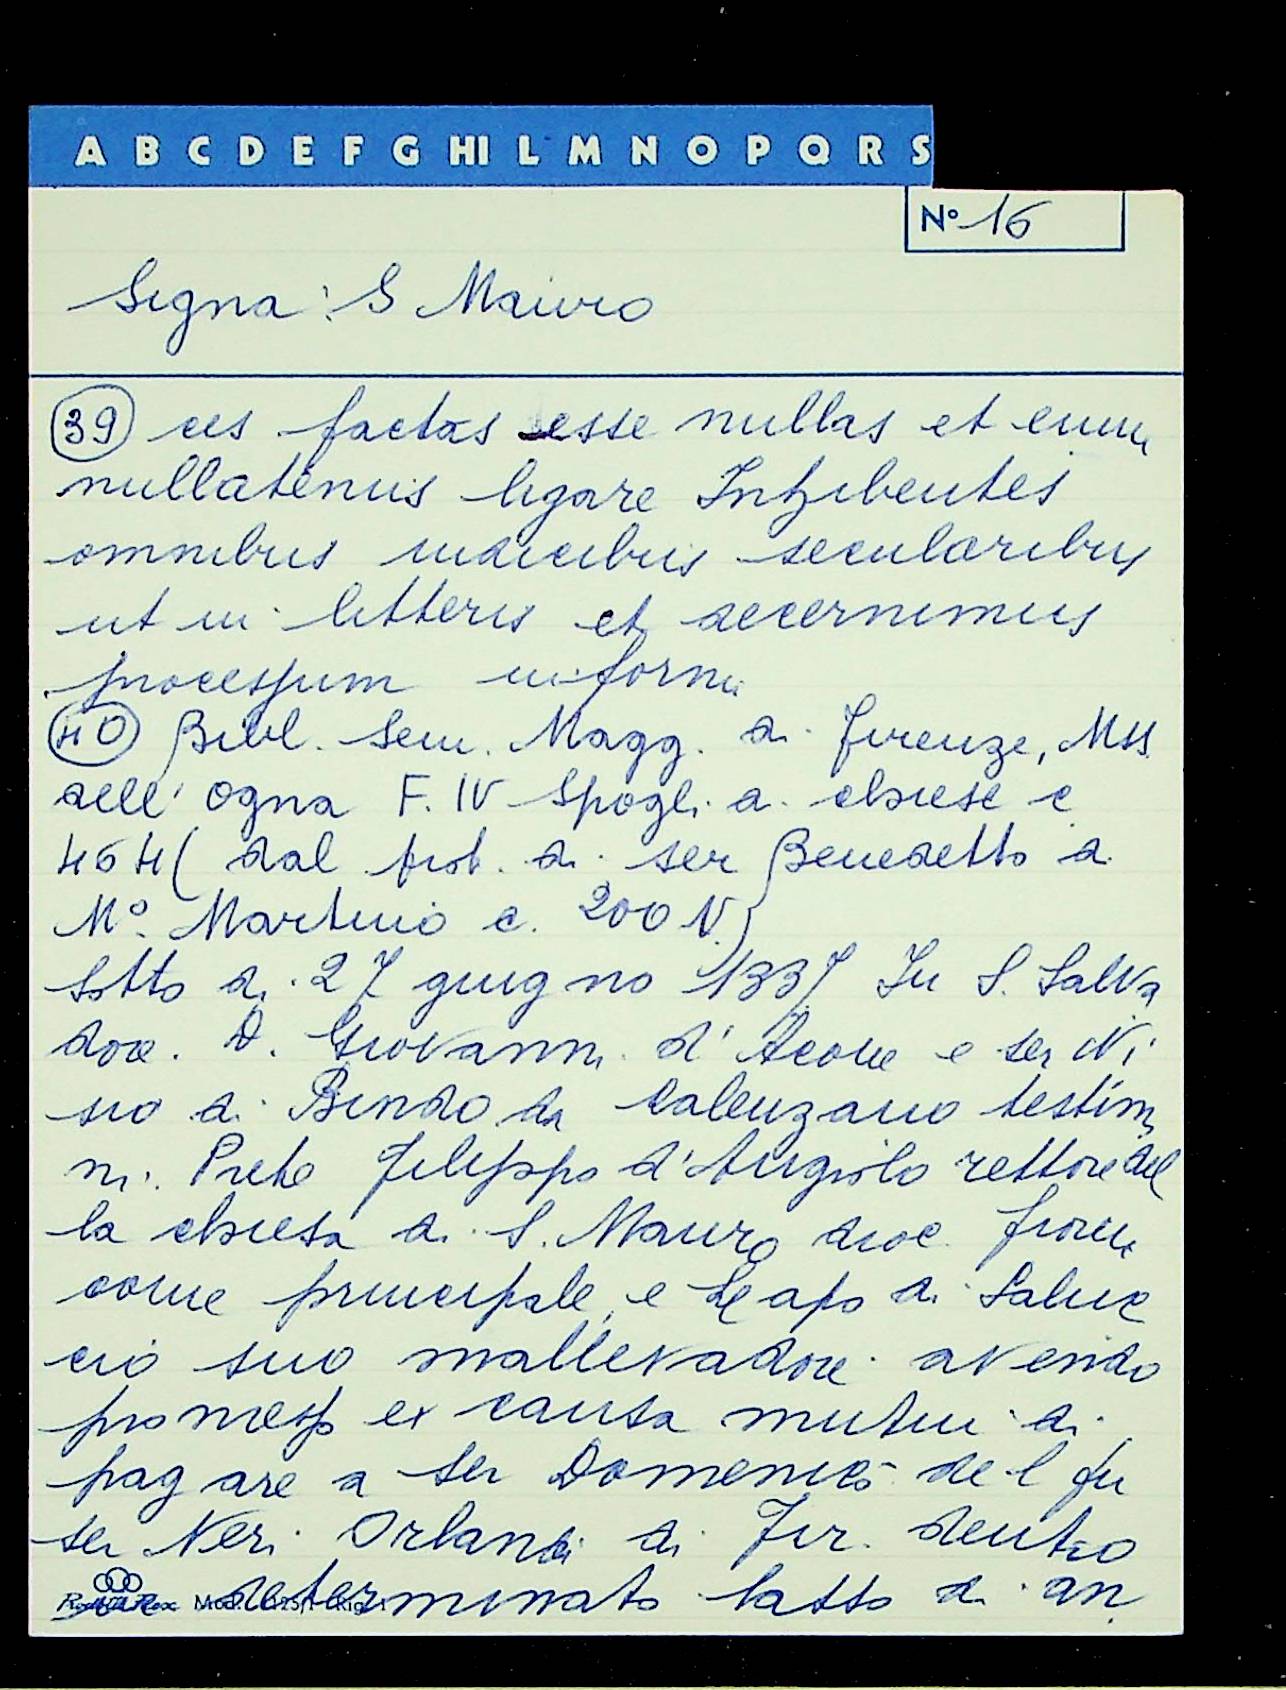 A B C D E F G HI L M N O P Q R S
N° 16
Signa: S Mauro
39 ces factas esse nullas et eum
nullatenus ligare Inhibentes
omnibus iudicibus secularibus
ut in litteris et decernimus
processum in forma
40 Bibl. Sem. Magg. di Firenze, Mss.
dell' Ogna F. IV Spogli di chiese c
464 ( dal prot. di ser Benedetto di
M° Martino c. 200 V.)
Sotto di 27 giugno 1337 In S. Salva
dore. D. Giovanni d' Acone e ser Ni
sio di Bindo da Calenzano testim
ni. Prete Filippo d'Angiolo rettore del
la chiesa di S. Mauro dioc. fioren
come principale, e Leapo di Saluc
cio suo mallevadore avendo
promesso ex causa mutui di
pagare a ser Domenico del fu
ser Neri Orlandi di Fir. dentro
determinato lasso di an